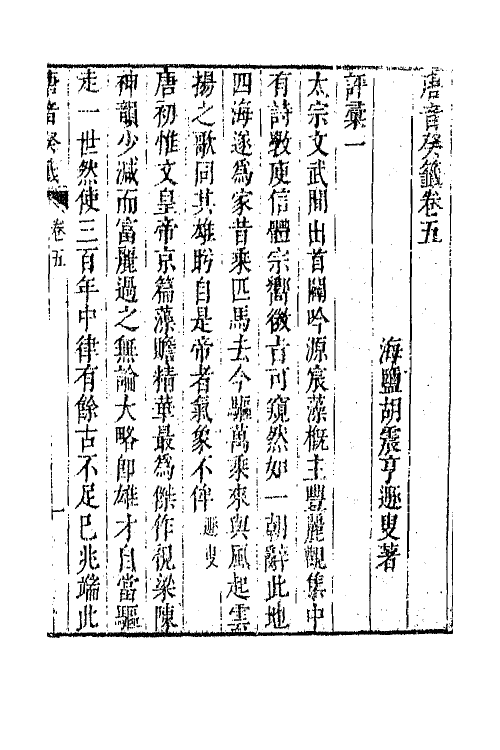 唐音癸籤卷五
海鹽胡震亨遯叟著
評彙一
太宗文武間出首闢吟源宸藻概主豐麗觀集中
有詩斆庾信體宗嚮微旨可窺然如一朝辭此地
四海遂爲家昔乘匹馬去今驅萬乘來與風起雲
揚之歌同其雄盻自是帝者氣象不侔 遯叟
唐初惟文皇帝京篇藻贍精華最爲傑作視梁陳
神韻少減而富麗過之無論大略卽雄才自當驅
走一世然使三百年中律有餘古不足已兆端此
唐音癸籤 卷五 一